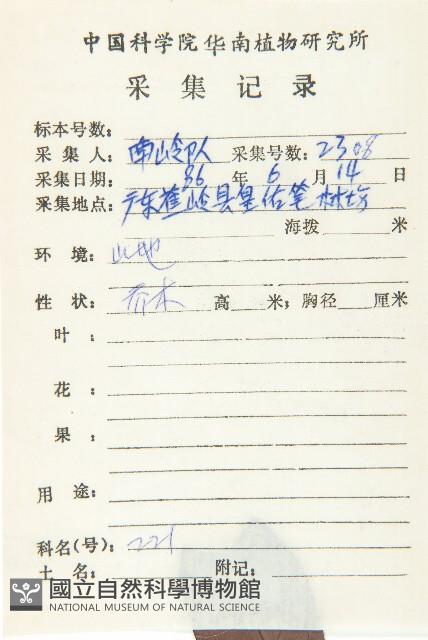 中国科学院华南植物研究所
采集记录
标本号数:
采集人: 南岭队 采集号数: 2308
采集日期: 86 年 6 月 14 日
采集地点: 广东蕉岭县皇佑笔林场
海拨 米
环境: 山地
性状: 乔木 高 米; 胸径 厘米
叶:
花:
果:
用途:
科名(号): 221
土名: 附记:
國立自然科學博物館
NATIONAL MUSEUM OF NATURAL SCIENCE